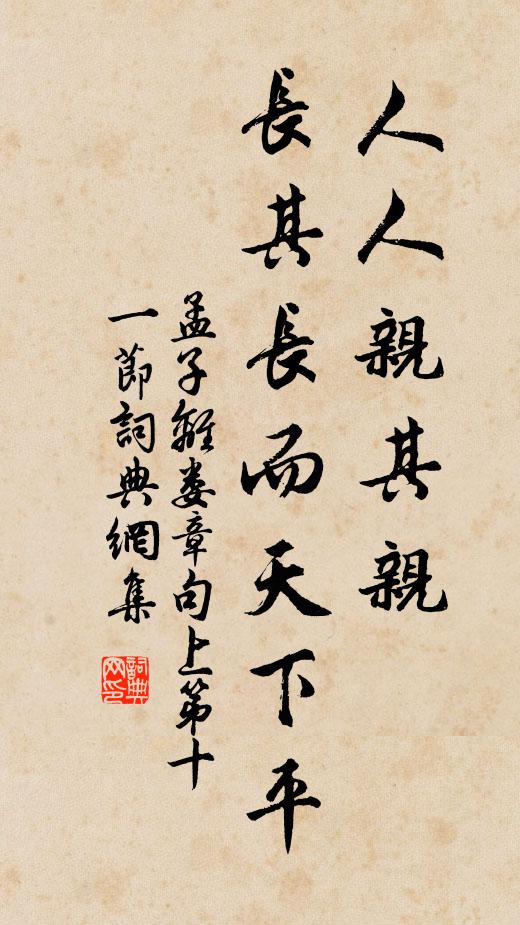 人人親其親
長其長而天下平
孟子離婁章句上第十
一節詞典網集
詞典
网印